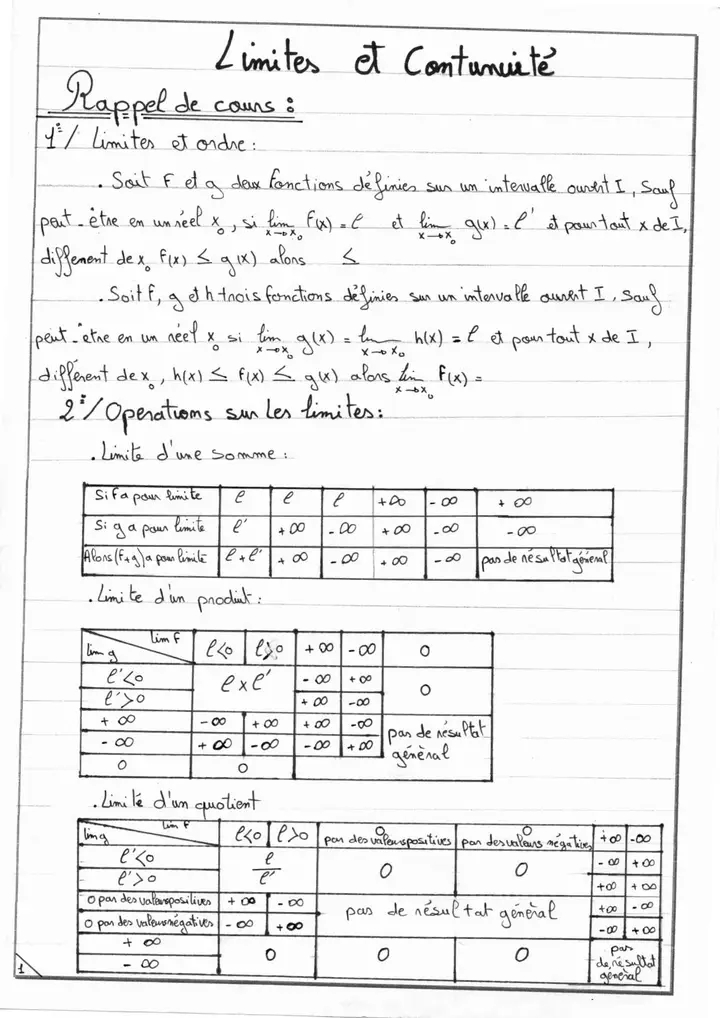 Limites et Contunuité
Rappel de cours :
1°/ Limites et ordre :
. Soit F et g deux fonctions définies sur un intervalle ouvert I, Sauf
peut-être en un réel x₀, si lim F(x) = ℓ et lim g(x) = ℓ' et pour tout x de I,
x→x₀ x→x₀
différement de x₀ F(x) ≤ g(x) alors ≤
. Soit f, g et h trois fonctions définies sur un intervalle ouvert I. Sauf
peut-être en un réel x₀ si lim g(x) = lim h(x) = ℓ et pour tout x de I,
x→x₀ x→x₀
différent de x₀, h(x) ≤ F(x) ≤ g(x) alors lim F(x) =
x→x₀
2°/ Operations sur les limites :
. Limite d'une somme :
Si f a pour limite ℓ ℓ ℓ +∞ -∞ +∞
Si g a pour limite ℓ' +∞ -∞ +∞ -∞ -∞
Alors (F+g) a pour limite ℓ+ℓ' +∞ -∞ +∞ -∞ pas de résultat général
. Limite d'un produit :
lim f
lim g ℓ<0 ℓ>0 +∞ -∞ 0
ℓ'<0 ℓxℓ' -∞ +∞ 0
ℓ'>0 +∞ -∞
+∞ -∞ +∞ +∞ -∞ pas de résultat
-∞ +∞ -∞ -∞ +∞ général
0 0
. Limité d'un quotient
lim f
lim g ℓ<0 ℓ>0 0 par des valeurs positives 0 par des valeurs négatives +∞ -∞
ℓ'<0 ℓ/ℓ' 0 0 -∞ +∞
ℓ'>0 +∞ +∞
0 par des valeurs positives +∞ -∞ pas de résultat général +∞ -∞
0 par des valeurs négatives -∞ +∞ -∞ +∞
+∞ 0 0 0 pas
-∞ de résultat
général
1